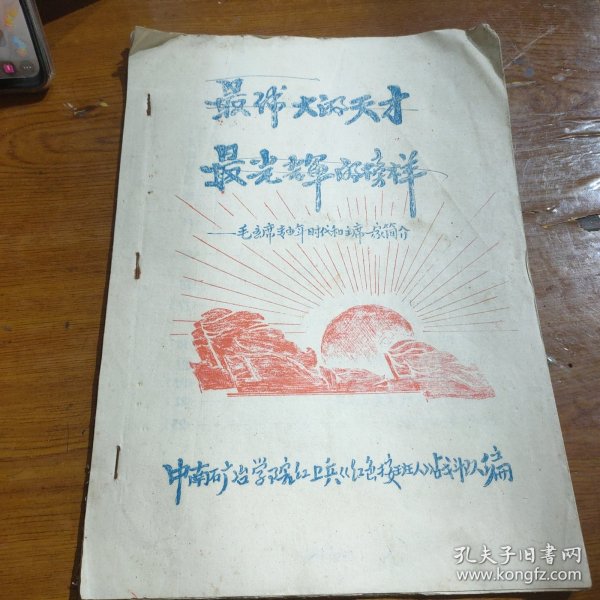 最伟大的天才
最光辉的榜样
——毛主席青少年时代和主席一家简介
中南矿冶学院红卫兵《红色接班人》战斗队编
孔夫子旧书网
www.kongfz.com